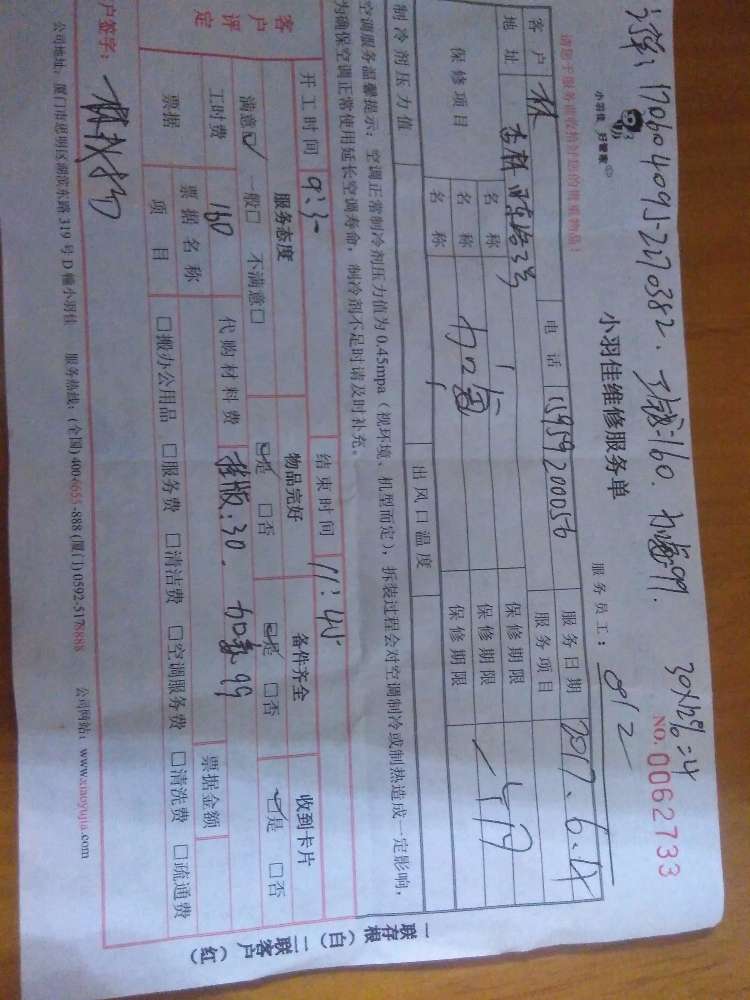 订单: 170604095-2170382. 工钱=160. 加氟99. 30×12%=4
小羽佳 好管家
小羽佳维修服务单
NO. 0062733
请您于服务前收拾好您的贵重物品!
服务员工: 812
客户 林 电话 15959200056 服务日期 2017.6.
地址 杏林 3号 服务项目
保修项目 名称 保修期限
名称 保修期限
名称 加氟 保修期限
制冷剂压力值 出风口温度
空调服务温馨提示: 空调正常制冷剂压力值为 0.45mpa (视环境、机型而定), 拆装过程会对空调制冷或制热造成一定影响,
为确保空调正常使用延长空调寿命, 制冷剂不足时请及时补充。
开工时间 9:3 结束时间 11:45
客户评定 服务态度 物品完好 备件齐全 收到卡片
满意☑ 一般□ 不满意□ ☑是 □否 ☑是 □否 ☑是 □否
工时费 160 代购材料费 :30. 加氟.99
票据 票据名称 票据金额
项目 □搬办公用品 □服务费 □清洁费 □空调服务费 □清洗费 □疏通费
户签字:
公司地址: 厦门市思明区湖滨东路 319 号 D 幢小羽佳 服务热线: (全国) 400-6655-888 (厦门) 0592-5176888 公司网站: www.xiaoyujia.com
一联存根(白) 二联客户(红)